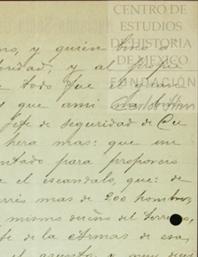 CENTRO DE
ESTUDIOS
DE HISTORIA
DE MEXICO
FUNDACIÓN
no, y quien
oridad; y al
todo fue el
s que ami
Jefe de seguridad de Cu
hera mas: que un
ntado para proporcio
e el escandalo, que: de
rrés mas de 200 hombres
mismo dueño del terreno,
fe de la Armas de esa,
el asunto, y muy